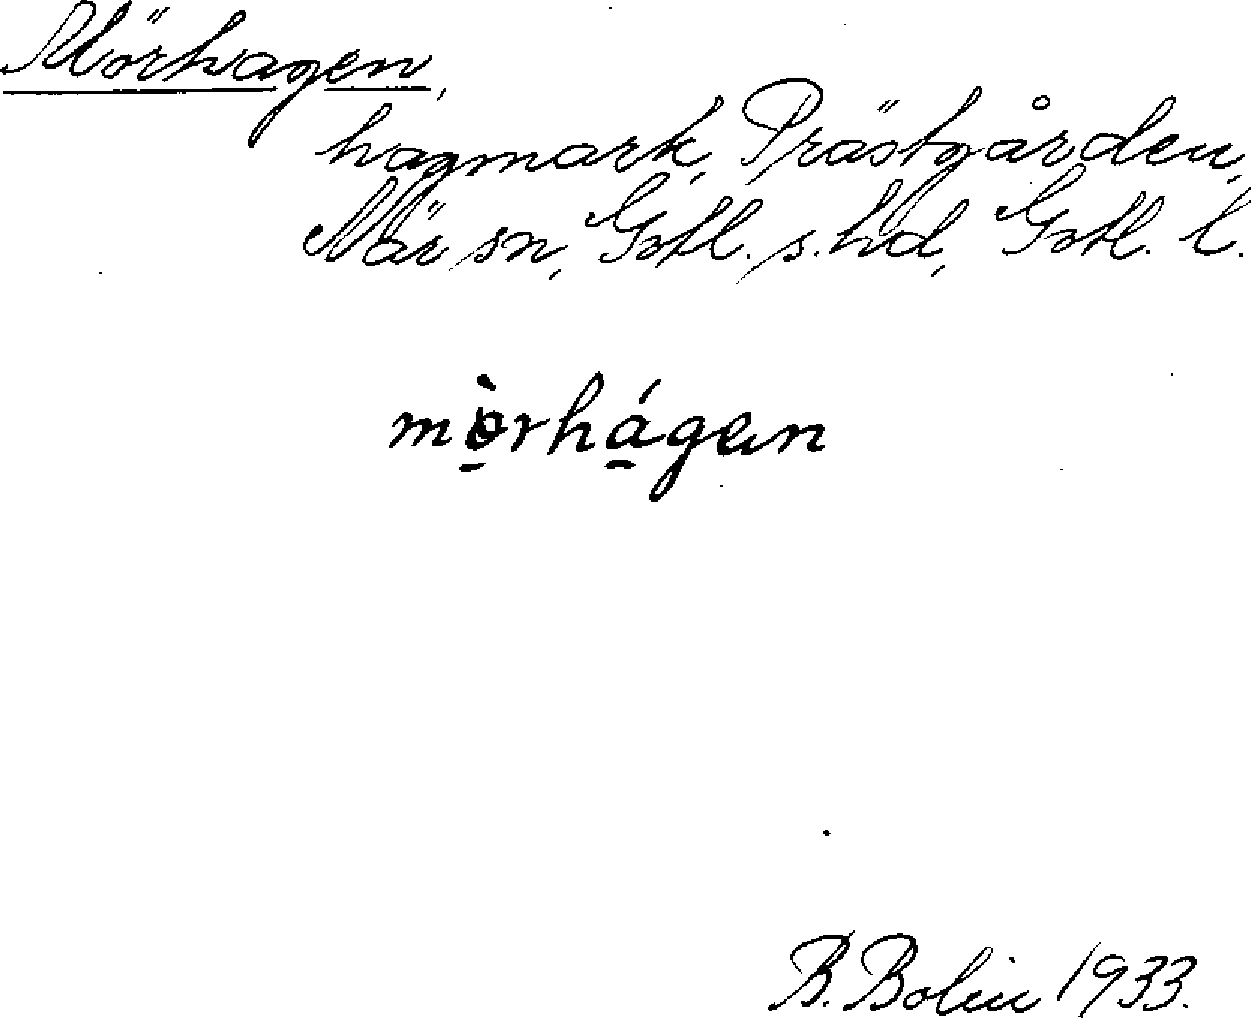 Mörhagen,
hagmark, Prästgården,
När sn, Gotl. s. hd, Gotl. l.
mọ̀rhạ́gan
B. Bolin 1933.